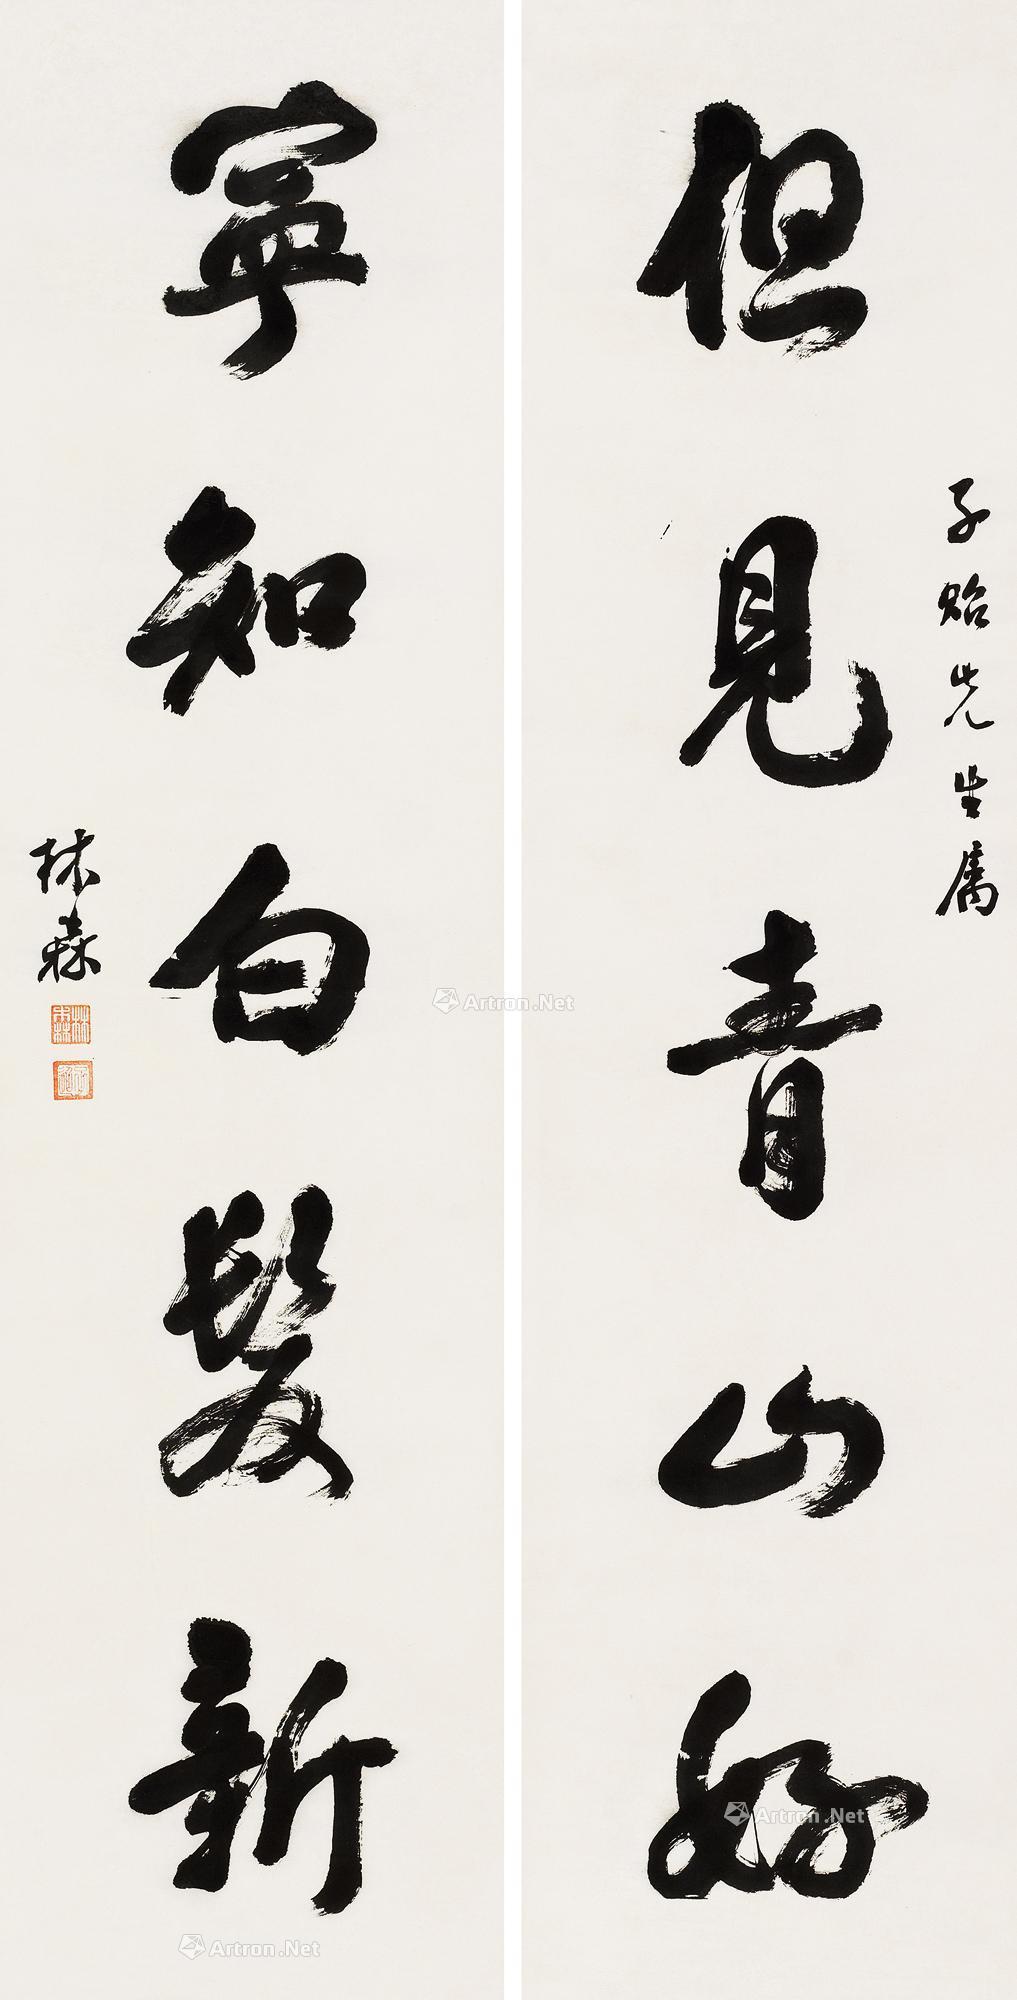 但見青山好
子貽先生属
寧知白髮新
林森
Artron.Net
Artron.Net
Artron.Net